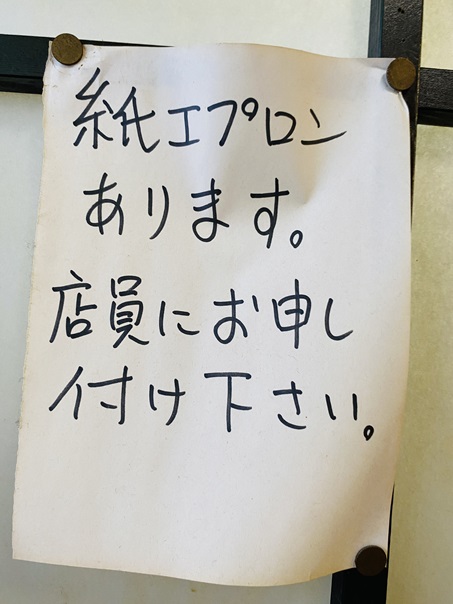 紙エプロン
あります。
店員にお申し
付け下さい。